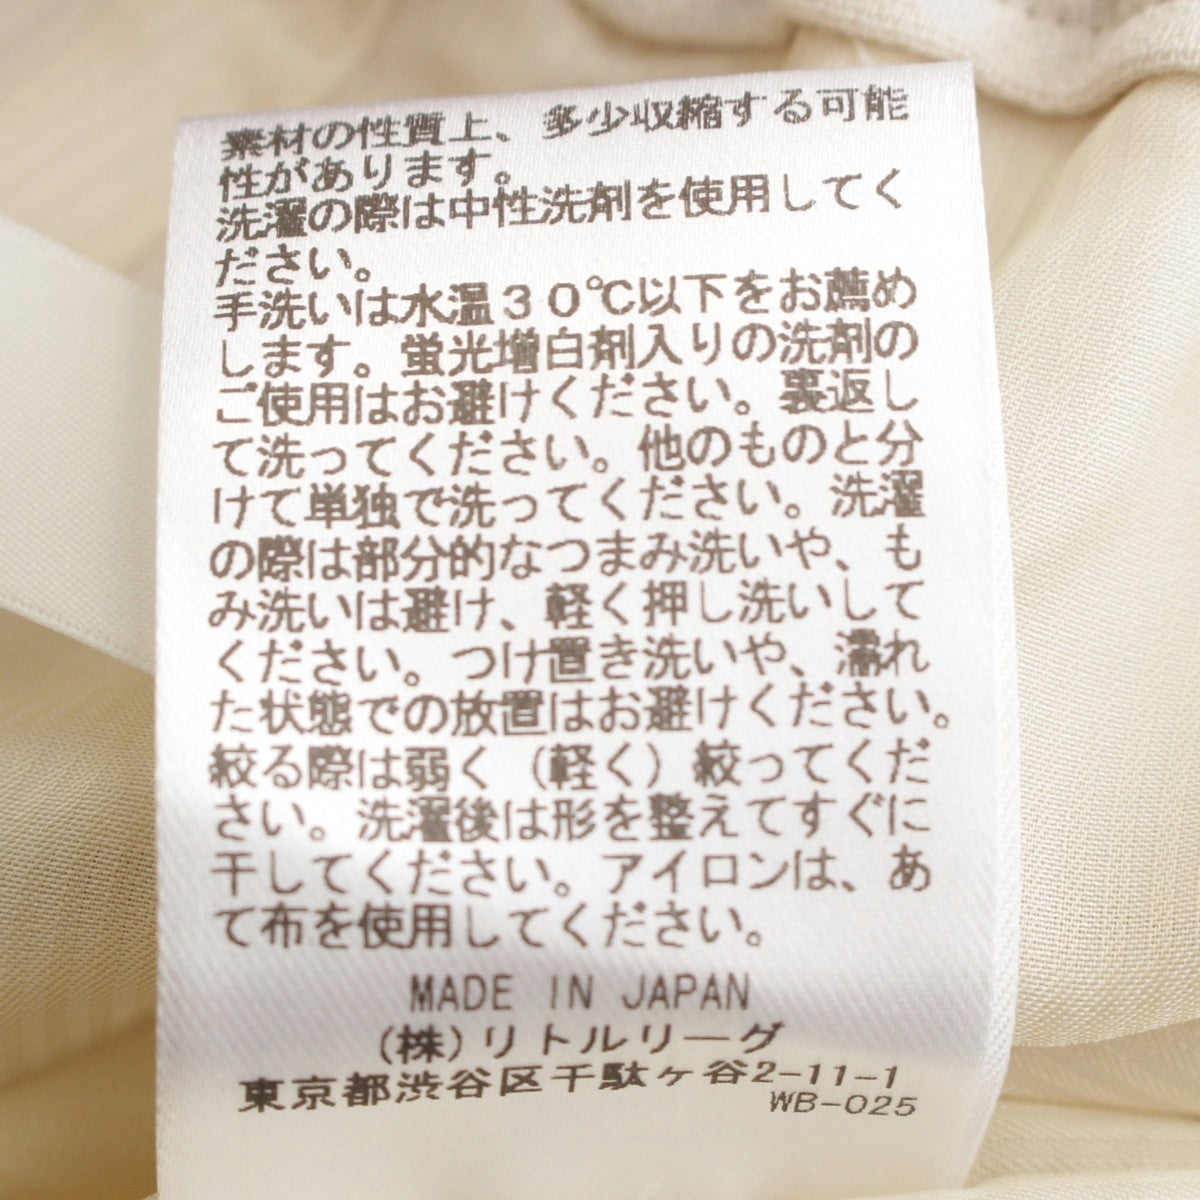 素材の性質上、多少収縮する可能
性があります。
洗濯の際は中性洗剤を使用してく
ださい。
手洗いは水温30℃以下をお薦め
します。蛍光増白剤入りの洗剤の
ご使用はお避けください。裏返し
て洗ってください。他のものと分
けて単独で洗ってください。洗濯
の際は部分的なつまみ洗いや、も
み洗いは避け、軽く押し洗いして
ください。つけ置き洗いや、濡れ
た状態での放置はお避けください。
絞る際は弱く(軽く)絞ってくだ
さい。洗濯後は形を整えてすぐに
干してください。アイロンは、あ
て布を使用してください。
MADE IN JAPAN
(株)リトルリーグ
東京都渋谷区千駄ヶ谷2-11-1
WB-025